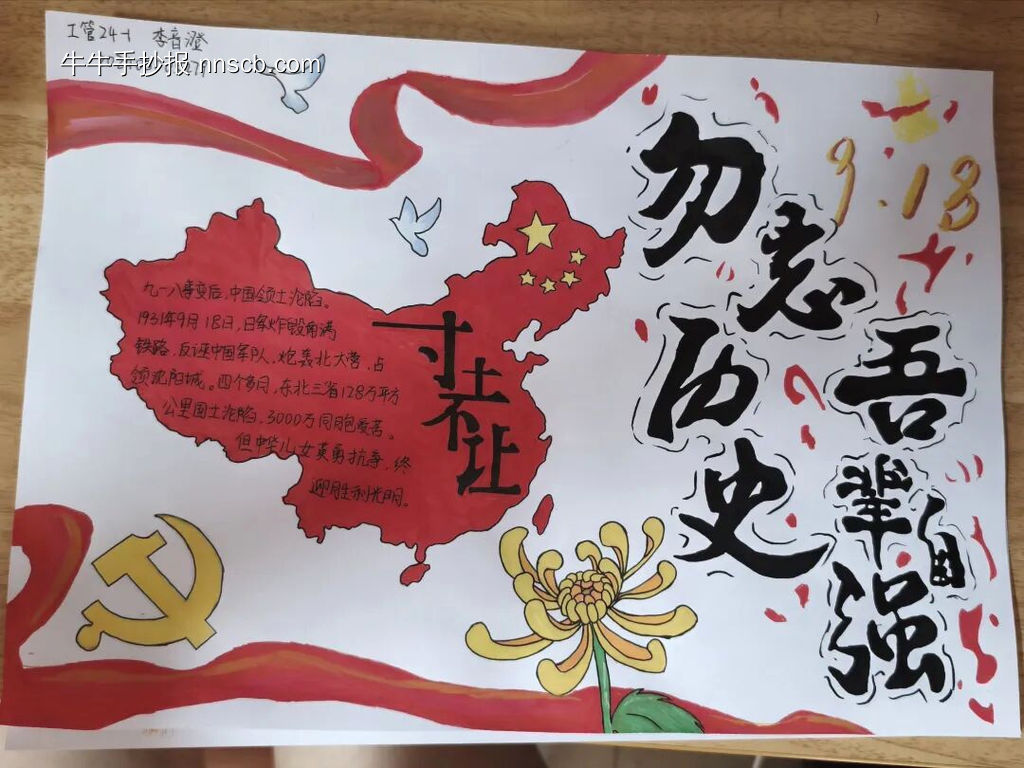 工管24-1 李音澄
牛牛手抄报 nnscb.com
9.18
勿忘历史
吾辈自强
九一八事变后,中国领土沦陷。
1931年9月18日,日军炸毁南满
铁路,反诬中国军队,炮轰北大营,占
领沈阳城。四个多月,东北三省128万平方
公里国土沦陷,3000万同胞受苦。
但中华儿女英勇抗争,终
迎胜利光明。
寸土不让